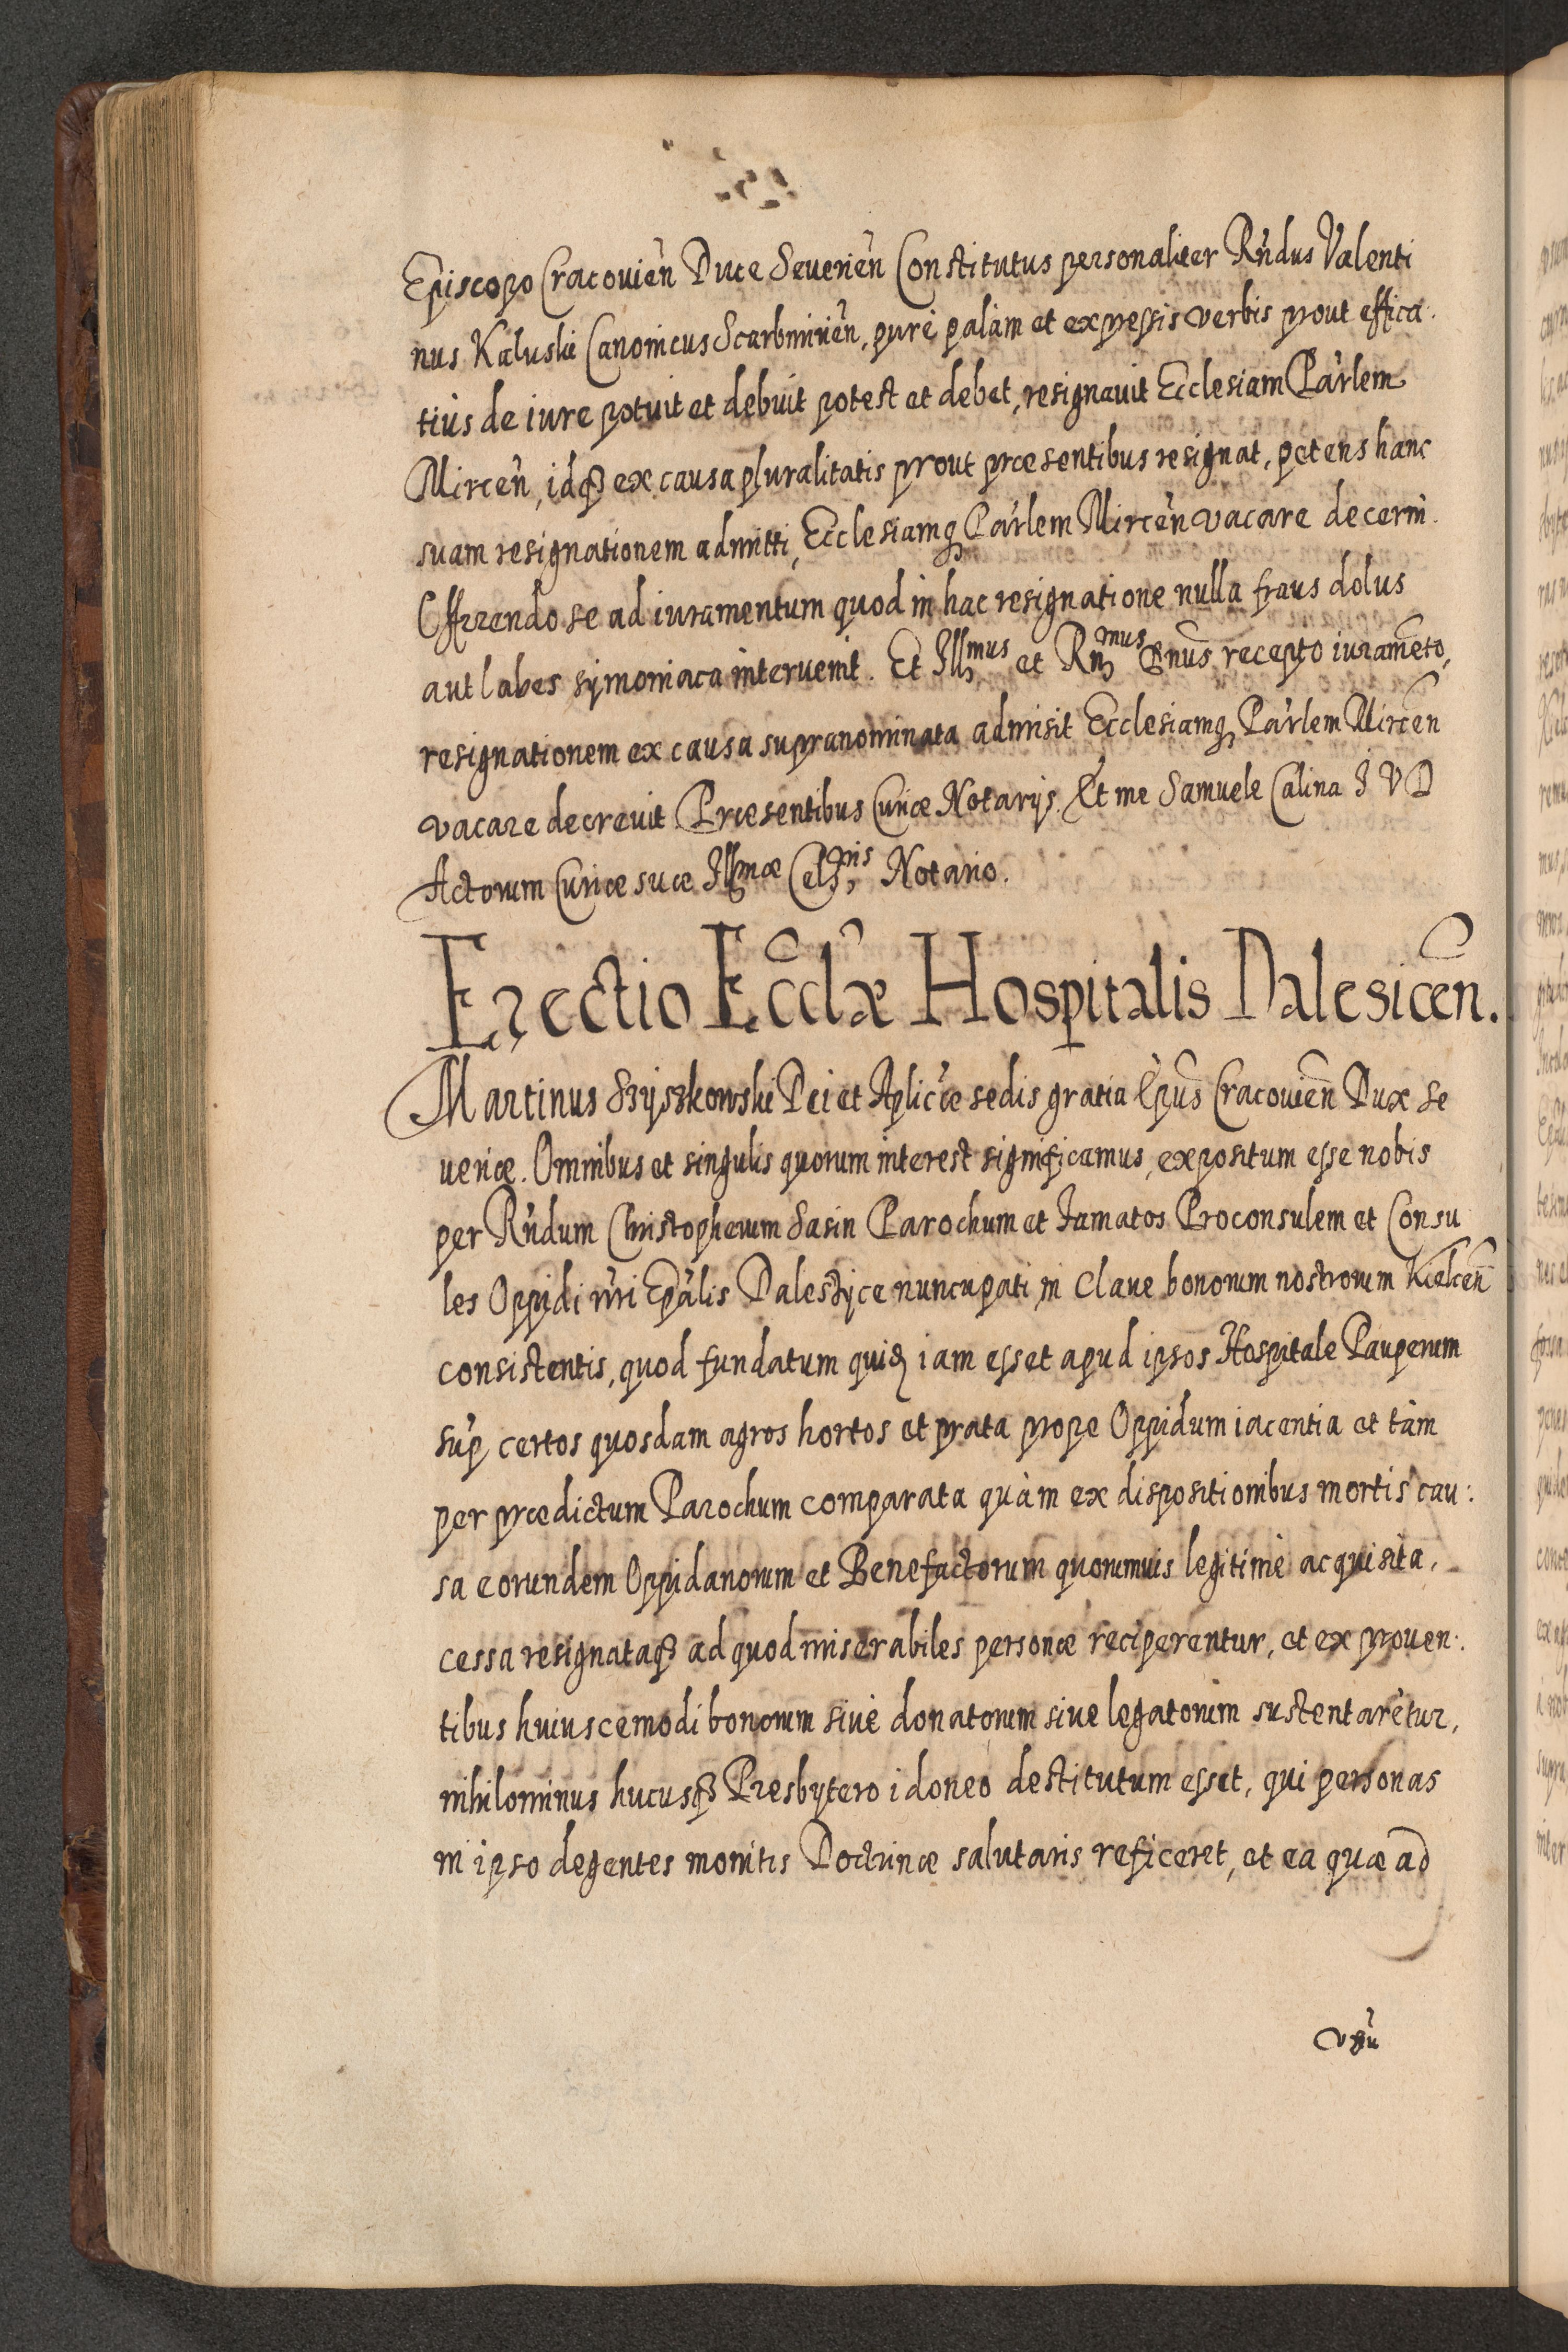 Episcopo Cracovień Duce Severień Constitutus personaliter Rńdus Valenti
nus Kaluski Canonicus Scarbimirień, purè palàm et expressis verbis prout effica.
tiùs de iure potuit et debuit potest et debet, resignavit Ecclesiam Pārlem
Mirceń, idq3 ex causa pluralitatis prout præsentibus resignat, petens hanc
suam resignationem admitti, Ecclesiamq3 Pārlem Mirceń vacare decerni.
Offerendo se ad iuramentum quod in hac resignatione nulla fraus dolus
aut labes symoniaca intervenit. Et Illmus et Rnmus Dnus recepto iuramēto,
resignationem ex causa supranominata admisit Ecclesiamq3 Pārlem Mirceń
vacare decrevit Præsentibus Curiæ Notarijs. Et me Samuele Calina I V D
Actorum Curiæ suæ Illmæ Celnis Notario.
Erectio Eccl̄æ Hospitalis Dalesiceń.
Martinus Szyszkowski Dei et Aplicæ sedis gratia Epūs Cracovień Dux Se
veriæ. Omnibus et singulis quorum interest significamus, expositum esse nobis
per Rńdum Christopherum Sasin Parochum et Famatos Proconsulem et Consu
les Oppidi nr̄i Epālis Dalestyce nuncupati in Clave bonorum nostrorum Kielceń
consistentis, quod fundatum quid3 iam esset apud ipsos Hospitale Pauperum
sup̄ certos quosdam agros hortos et prata prope Oppidum iacentia et tàm
per prædictum Parochum comparata quàm ex dispositionibus mortis cau:
sa eorundem Oppidanorum et Benefactorum quorumvis legitimè acquisita,
cessa resignataq3 ad quod miserabiles personæ reciperentur, et ex proven:
tibus huiuscemodi bonorum sivè donatorum sive legatorum sustentarētur,
nihilominus hucusq3 Presbytero idoneo destitutum esset, qui personas
in ipso degentes monitis Doctrinæ salutaris reficeret, et ea quæ ad
vsū